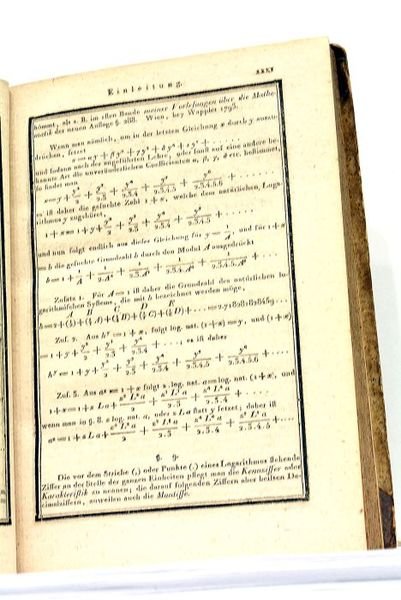 XXXI
Einleitung.
kömmt, als z. B. im 1sten Bande meiner Vorlesungen über die Mathe-
matik der neuen Auflage §. 288. Wien, bey Wappler 1793.
Wenn man nämlich, um in der letzten Gleichung x durch y auszu-
drücken, setzet
x = αy + βy² + γy³ + δy⁴ + εy⁵ +
und sodann nach der angeführten Lehre, oder sonst auf eine andere be-
kannte Art die unveränderlichen Coefficienten α, β, γ, δ etc. bestimmet,
so findet man
x = y + y²/2 + y³/2.3 + y⁴/2.3.4 + y⁵/2.3.4.5 + y⁶/2.3.4.5.6 + . . . . . .
es ist daher die gesuchte Zahl 1 + x, welche dem natürlichen Loga-
rithmus y zugehöret,
1 + x = 1 + y + y²/2 + y³/2.3 + y⁴/2.3.4 + y⁵/2.3.4.5 + . . . . . .
und nun folgt endlich aus dieser Gleichung für y = 1/A, und für 1 + x
= b die gesuchte Grundzahl b durch den Modul A ausgedrückt
b = 1 + 1/A + 1/2.A² + 1/2.3.A³ + 1/2.3.4.A⁴ + 1/2.3.4.5.A⁵ + . . . .
Zusatz 1. Für A = 1 ist daher die Grundzahl des natürlichen lo-
garithmischen Systems, die mit h bezeichnet werden möge,
A B C D E
h = 2 + (½) + (⅓ A) + (¼ B) + (⅕ C) + (⅙ D) + . . . . = 2.718281828459 . . .
Zus. 2. Aus hʸ = 1 + x, folgt log. nat. (1 + x) = y, und (1 + x)
= 1 + y + y²/2 + y³/2.3 + y⁴/2.3.4 + . . . . ; es ist daher
hʸ = 1 + y + y²/2 + y³/2.3 + y⁴/2.3.4 + y⁵/2.3.4.5 + y⁶/2.3.4.5.6 + . . . .
Zus. 3. Aus aᶻ = 1 + x folgt z. log. nat. a = log. nat. (1 + x), und
1 + x = 1 + z L a + z² L² a/2 + z³ L³ a/2.3 + z⁴ L⁴ a/2.3.4 + . . . .
wenn man in §. 8. z log. nat. a, oder z L a statt y setzet; daher ist
aᶻ = 1 + z L a + z² L² a/2 + z³ L³ a/2.3 + z⁴ L⁴ a/2.3.4 + z⁵ L⁵ a/2.3.4.5 + . . . .
§. 9.
Die vor dem Striche (,) oder Punkte (.) eines Logarithmus stehende
Ziffer an der Stelle der ganzen Einheiten pflegt man die Kennziffer oder
Karakteristik zu nennen; die darauf folgenden Ziffern aber heissen De-
cimalziffern, zuweilen auch die Mantisse.